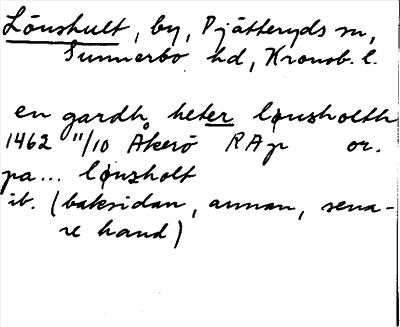 Lönshult, by, Pjätteryds sn,
Sunnerbo hd, Kronob. l.
en gardh heter lønsholth
1462 11/10 Åkerö RAp or.
pa... lønsholt
ib. (baksidan, annan, sena-
re hand)